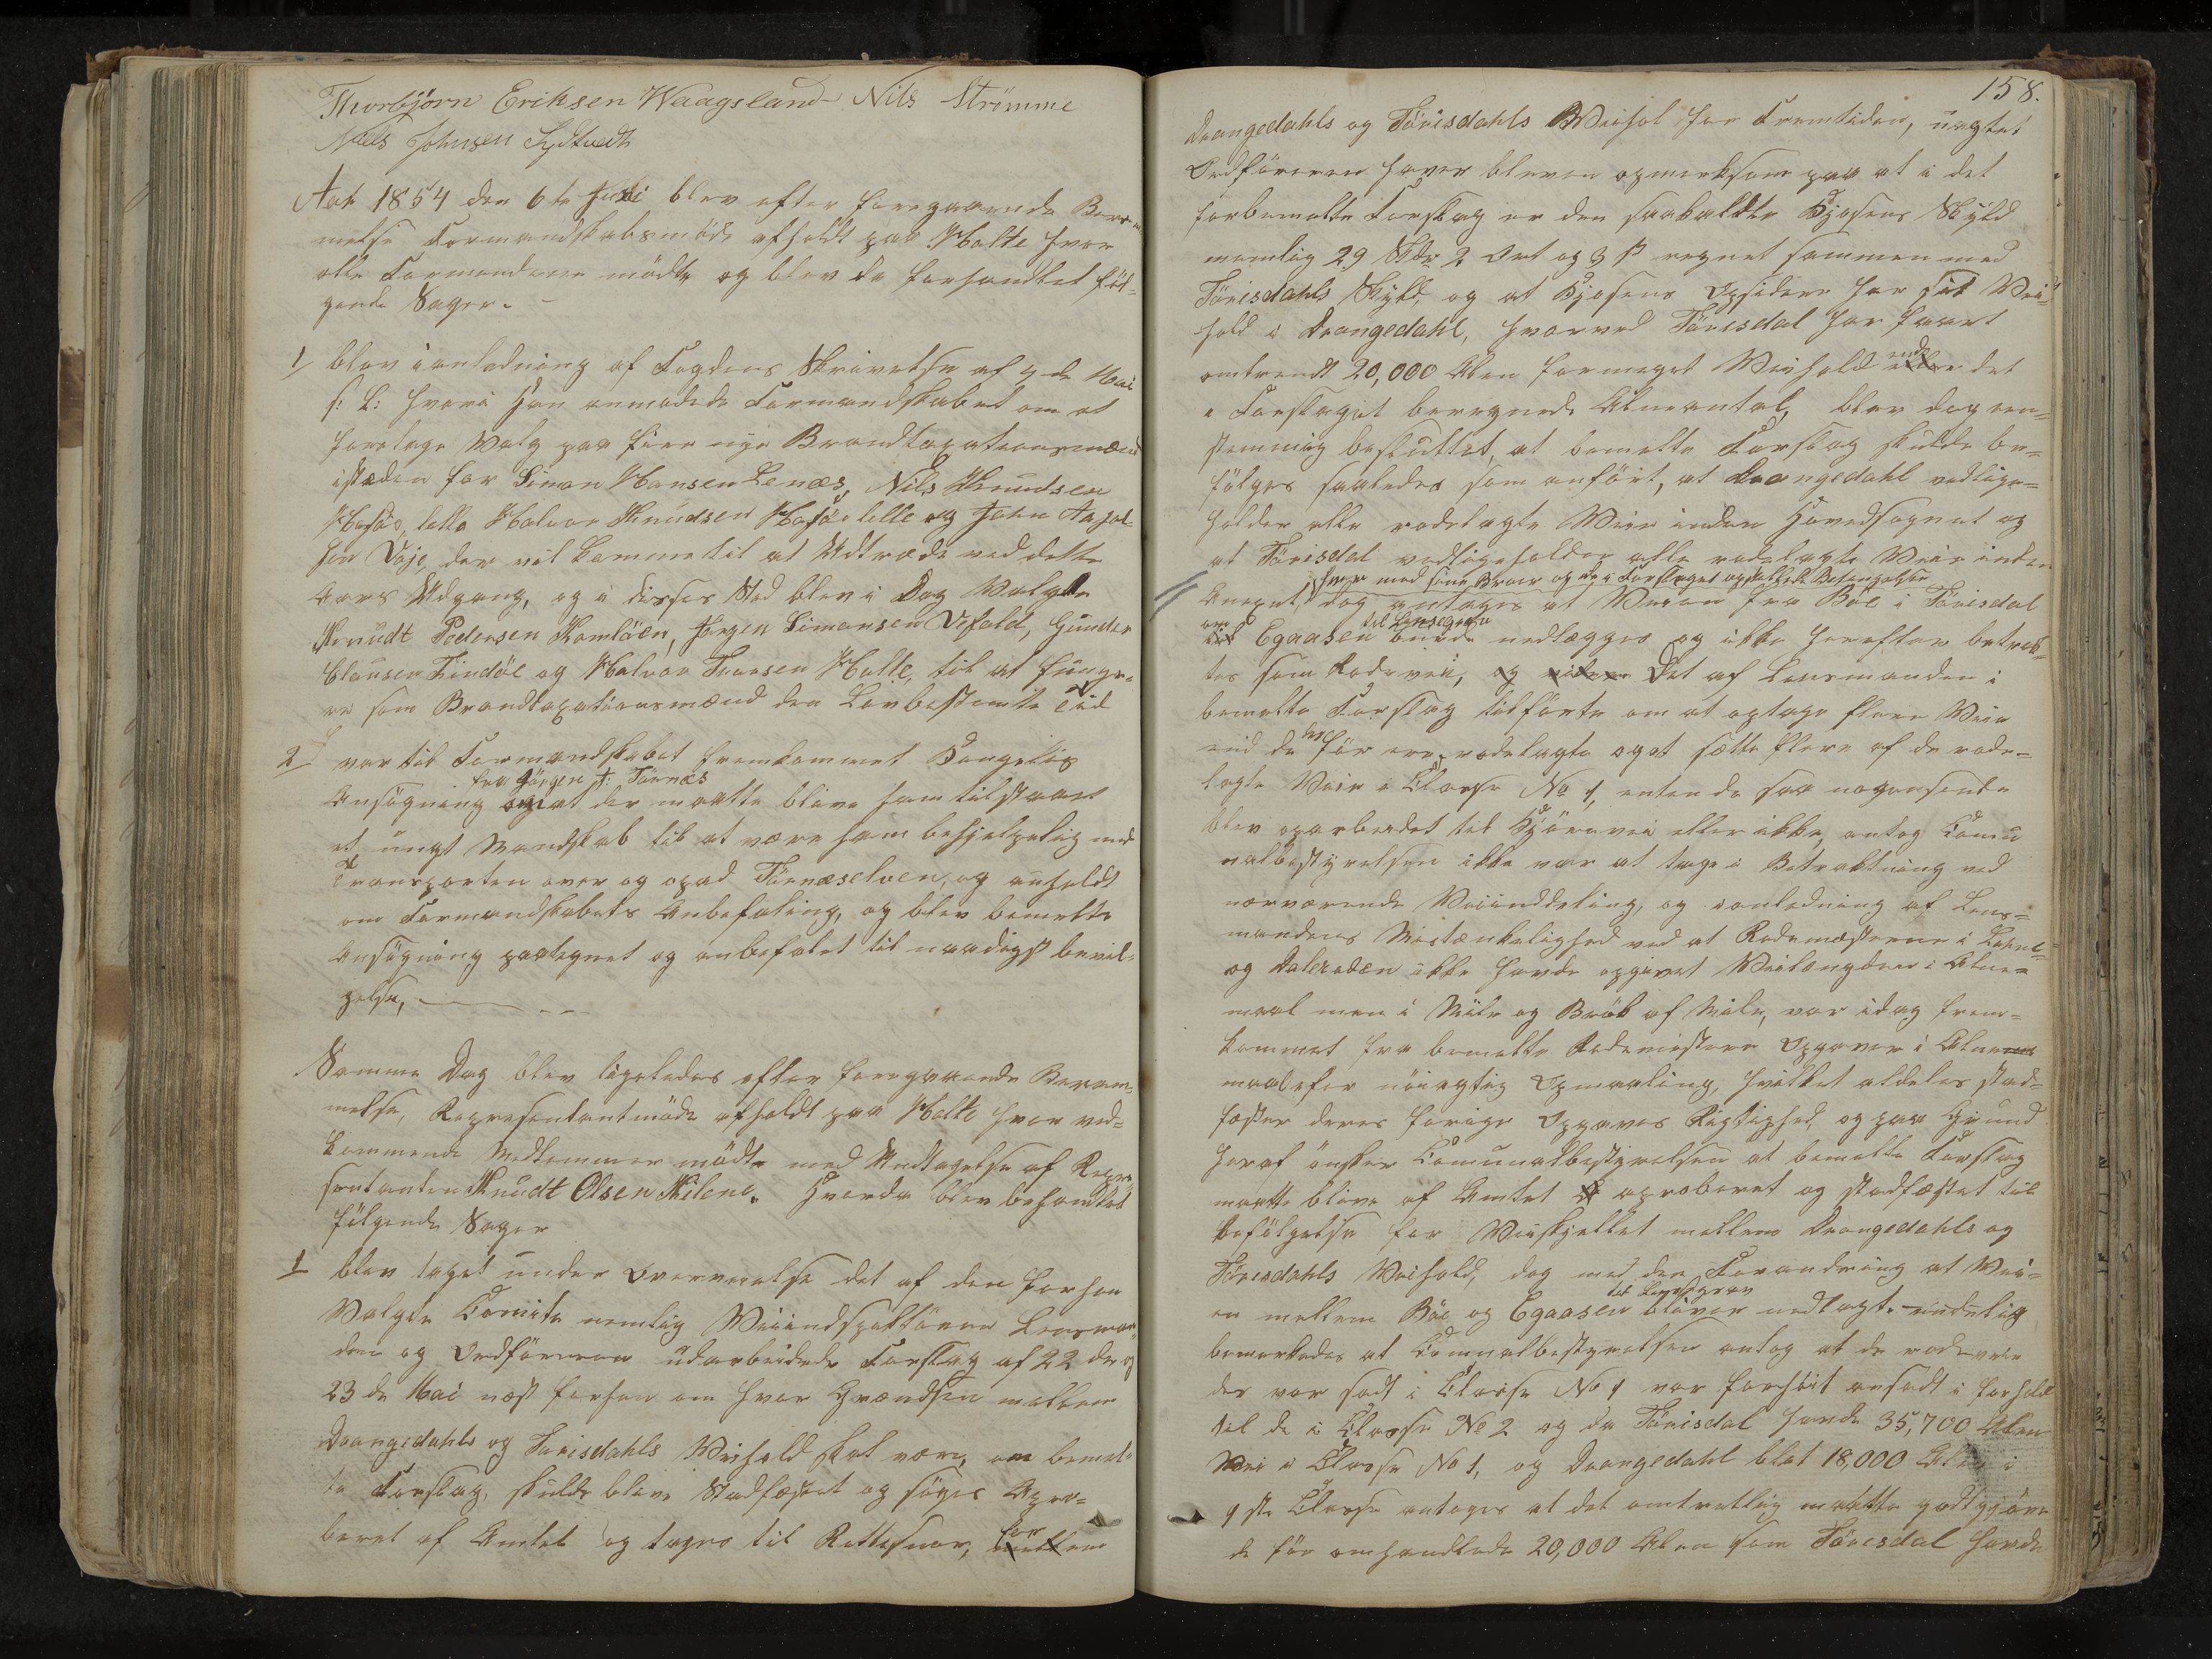 Thorbjörn Eriksen Waagsland Nils Strömme
Niels Johnsen Sydtvedt
Aar 1854 den 6te Juli blev efter foregaaende Beram
melse Formandskabsmöde afholdt paa Holte hvor
alle Formændene mödte og blev da forhandlet föl-
gende Sager. –
1/ blev i anledning af Fogdens Skrivelse af 4de Mai
s: L: hvori Han anmodede Formandskabet om at
foretage Valg paa fire nye Brandtaxationsmænd
isteden for Simon Hansen Lenæs, Nils Knudsen
lille Halvor Knudsen lille og John
sen Voje, der vil komme til at Udtræde ved dette
Aars Udgang, og i disses Sted blev i Dag Valgte
Knudt Pedersen Komlöen, Jørgen Simonsen Vefald, Gunder
Clausen Lindöe og Halvor Tversen Holte, til at funge-
re som Brandtaxationsmænd den Lovbestemte Tid
2/ var til Formandskabet fremkommet
fra Jörgen T: Törnæs
Ansögning at der maatte blive ham tilstaaet
et ungt Mandskab til at være ham behjelpelig med
Transporten over og opad Törnæselven, og anholdt
om Formandskabets Anbefaling, og blev bemelte
Ansögning paategnet og anbefalet til naadigst bevil-
gelse, –
Samme Dag blev ligeledes efter foregaaende Beram-
melse, Representantmöde afholdt paa Holte hvor ved-
kommende Medlemmer mödte med Undtagelse af Repre
sentanten Knudt Olsen Kilene. Hvorda blev behandlet
fölgende Sager
1 blev taget under Overveielse det af den forhen
Valgte Comite nemlig Veiindspektören Lensman-
den og Ordföreren udarbeidede Forslag af 22de og
23de Mai næst forhen om hvor Grændsen mellem
Drangedahls og Törisdahls Veihold skal være, om bemel-
te Forslag, skulde blive Stadfæstet og söges Apro-
beret af Amtet og tages til Rettesnor, for mellem
158.
Drangedahls og Törisdahls Veihol for Fremtiden, uagtet
Ordföreren haver bleven opmerksom paa at i det
forbemelte Forslag er den saakaldte Kjosens Skyld
nemlig 29 Sdr 2 Ort og 3 ß regnet sammen med
Törisdahls Skyld, og at Kjosens Opsidere har sit Vei-
hold i Drangedahl, hvorved Törisdal har faaet
omtrendt 20,000 Alen formeget Veihold end det
i Forslaget beregnede Alneantal, blev dog een-
stemmig besluttet, at bemelte Forslag skulde be-
fölges saaledes som anfört, at Drangedahl vedlige-
holder alle rodelagte Veie inden Hovedsognet og
at Törisdal vedligeholder alle rodelagte Veie inden
hver med sine Broer og de i Forslaget opstillede Betingelser
Annexet, dog antages at Veien fra Böe i Törisdal
over til Lensegrav
til Egaasen burde nedlægges og ikke herefter betrak-
tes som Rodevei, og Det af Lensmanden i
bemelte Forslag tilförte om at optage flere Veie
end de som för ere rodelagte og at sætte flere af de rode-
lagte Veie i Classe No 1, enten de saa nogensinde
blev oparbeidet til Kjörevei eller ikke, antog Comu
nalbestyrelsen ikke var at tage i Betraktning ved
nærværende Veiinddeling, og i anledning af Lens-
mandens Mistænkelighed ved at Rodemesterne i
og Dalerøden ikke havde opgivet Veilængden i Alne-
maal men i Mile og Brök af Mile, var idag frem-
kommet fra bemelte Rodemestere Opgaver i Alne
maal efter nöiagtig Opmaaling, hvilket aldeles stad-
fæster deres forige Opgaves Rigtighed, og paa Grund
heraf önsker Comunalbestyrelsen at bemelte Forslag
maatte blive af Amtet aproberet og stadfæstet til
Befölgelse for Veiskjellet mellem Drangedahls og
Törisdahls Veihold, dog med den Forandring at Vei-
til Lensegrav
en mellem Böe og Egaasen bliver nedlagt. endelig
bemerkedes at Comunalbestyrelsen antog at de rodeveie
der var sadt i Classe No 1 var forhöit ansadt i forhold
til de i Classe No 2 og da Törisdal havde 35,700 Alen
Vei i Classe No 1, og Drangedahl blot 18,000 Alen i
1ste Classe antages at det omtrentlig maatte godtgjöre
de för omhandlede 20,000 Alen som Törisdal havde